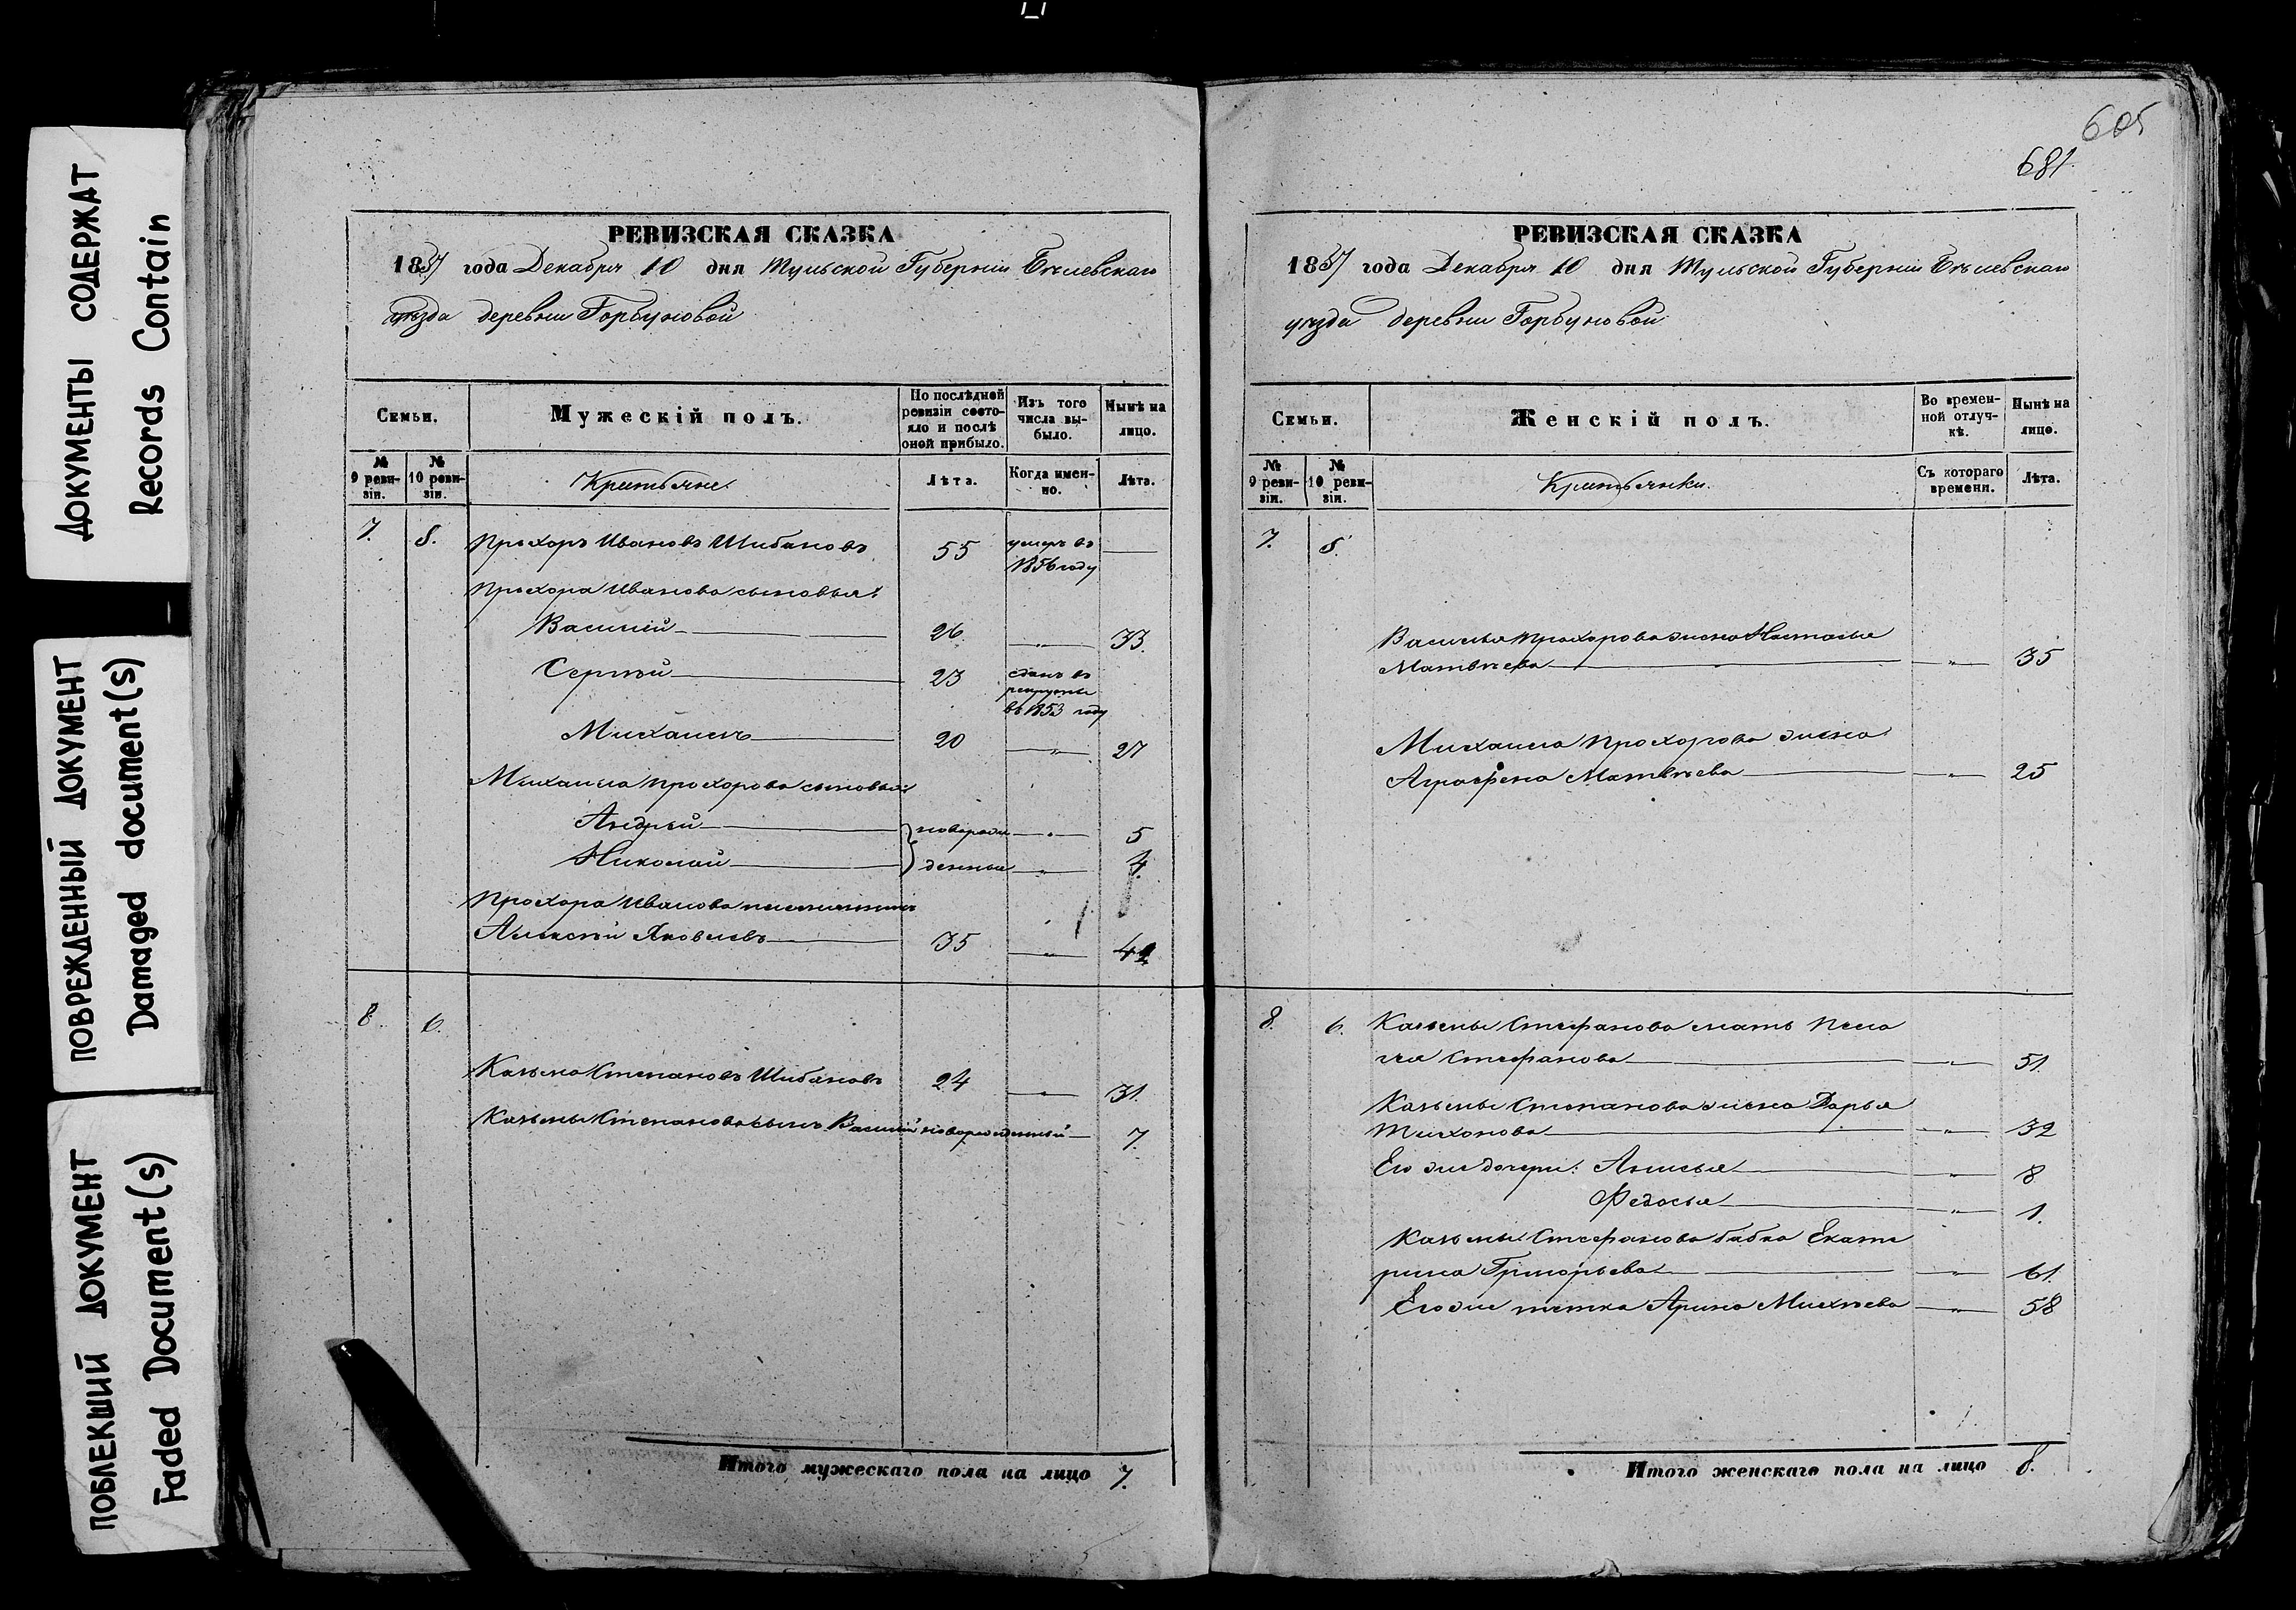 ДОКУМЕНТЫ СОДЕРЖАТ
Records Contain
ПОВРЕЖДЕННЫЙ ДОКУМЕНТ
Damaged document(s)
ПОБЛЕКШИЙ ДОКУМЕНТ
Faded Document(s)
РЕВИЗСКАЯ СКАЗКА
1857 года Декабря 10 дня Тульской Губерніи Бѣлевскаго
уѣзда деревни Горбуновой
Семьи.
Мужескій полъ.
По послѣдней
ревизіи состо-
яло и послѣ
оной прибыло.
Изъ того
числа вы-
было.
Нынѣ на
лицо.
№
9 реви-
зіи.
№
10 реви-
зіи.
Крестьяне.
Лѣта.
Когда имен-
но.
Лѣта.
7. 8. Прохоръ Ивановъ Шибановъ 55 умеръ въ
1856 году
Прохора Иванова сыновья:
Василій 26 „ 33.
Сергѣй 23 сданъ въ
рекруты
въ 1853 году
Михаилъ 20 „ 27
Михаила Прохорова сыновья:
Андрей новорож „ 5
Николай денные „ 4.
Прохора Иванова племянникъ
Алексѣй Яковлевъ 35 „ 42
8. 6.
Казьма Степановъ Шибановъ 24 „ 31.
Казьмы Степанова сынъ Василій новорожденный 7.
Итого мужескаго пола на лицо 7.
605
681
РЕВИЗСКАЯ СКАЗКА
1857 года Декабря 10 дня Тульской Губерніи Бѣлевскаго
уѣзда деревни Горбуновой
Семьи.
Женскій полъ.
Во времен-
ной отлуч-
кѣ.
Нынѣ на
лицо.
№
9 реви-
зіи.
№
10 реви-
зіи.
Крестьянки.
Съ котораго
времени.
Лѣта.
7. 8.
Василья Прохорова жена Настасья
Матвѣева „ 35
Михаила Прохорова жена
Аграфена Матвѣева „ 25
8. 6. Казьмы Стефанова мать Пела
гея Стефанова „ 51.
Казьмы Степанова жена Дарья
Тихонова „ 32
Его же дочери: Анисья „ 8
Федосья „ 1.
Казьмы Стефанова бабка Екате
рина Григорьева „ 61.
Его же тетка Арина Михѣева „ 58
Итого женскаго пола на лицо 8.